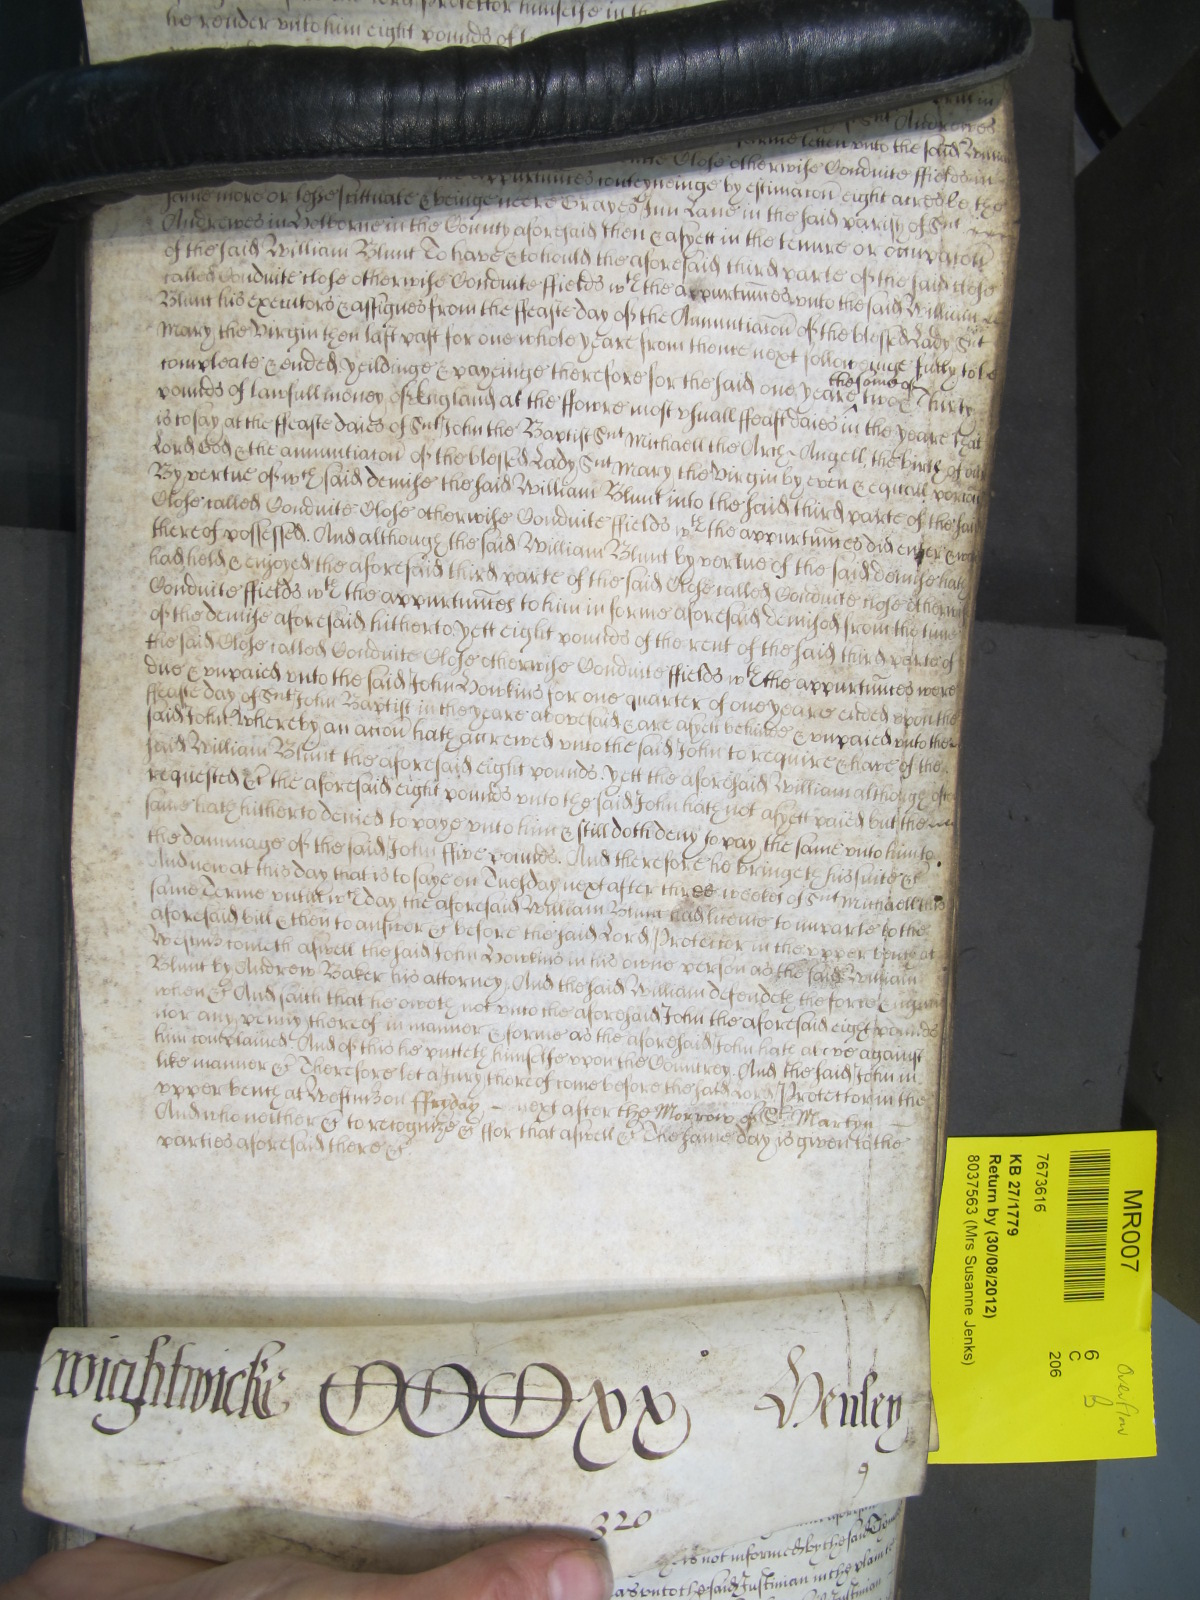 he render unto him eight pounds of
Andrewes
forme letten unto the said Willia
Close otherwise Conduite ffields
the appurtunces conteyneinge by estimacon eight acres be the
same more or lesse scittuate & beinge neere Grayes Inn Lane in the said parish of Snt
Andrewes in Holborne in the County aforesaid then & asyett in the tenure or occupacon
of the said William Blunt To have & to hould the aforesaid third parte of the said close
called Conduite close otherwise Conduite ffields wth the appurtunces unto the said William
Blunt his executors & assignes from the ffeaste day of the Annuntiacon of the blessed Lady Snt
Mary the Virgin then last past for one whole yeare from thence next followeinge fully to be
compleate & ended, yeildinge & payeinge therefore for the said one yeare the some of two & Thirty
pounds of lawfull money of England at the ffowre most usuall ffeast daies in the yeare that
is to say at the ffeaste daies of Snt John the Baptist Snt Michaell the Arch Angell, the birth of our
Lord God & the annuntiacon of the blessed Lady Snt Mary the Virgin by even & equall porcons
By vertue of wch said demise the said William Blunt into the said third parte of the said
Close called Conduite Close otherwise Conduite ffields wth the appurtunces did enter & was
thereof possessed. And although the said William Blunt by vertue of the said demise hath
had held & enjoyed the aforesaid third parte of the said Close called Conduite close otherwise
Conduite ffields wth the appurtunces to him in forme aforesaid demised from the time
of the demise aforesaid hitherto, yett eight pounds of the rent of the said third parte of
the said Close called Conduite Close otherwise Conduite ffields wth the appurtunces were
due & unpaied unto the said John Howkins for one quarter of one yeare ended upon the
ffeaste day of Snt John Baptist in the yeare abovesaid & are asyett behinde & unpaied unto the
said John Whereby an accon hath accrewed unto the said John to require & have of the
said William Blunt the aforesaid eight pounds. yett the aforesaid William although often
requested &c the aforesaid eight pounds unto the said John hath not asyett paied but the
same hath hitherto denied to paye unto him & still doth deny to pay the same unto him to
the dammage of the said John ffive pounds. And therefore he bringeth his suite &c
And now at this day that is to saye on Tuesday next after three weekes of Snt Michaell this
same Terme untill wch day the aforesaid William Blunt had licence to imparle to the
aforesaid bill & then to answer &c before the said Lord Protector in the upper bench at
Westmr cometh aswell the said John Howkins in his owne person as the said William
Blunt by Andrew Baker his attorney. And the said William defendeth the force & injury
when &c And saith that he oweth not unto the aforesaid John the aforesaid eight pounds
nor any penny thereof in manner & forme as the aforesaid John hath above against
him complained. And of this he putteth himselfe upon the Countrey. And the said John in
like manner &c Therefore let a Jury thereof come before the said Lord Protector in the
upper bench at Westmr on ffriday next after the Morrow of St Martyn
And who neither &c to recognize &c ffor that aswell &c The same day is given to the
parties aforesaid there &c
Wightwicke CCCxx Henley
9
320
is not informed by the said Thomas
as unto the said Justinian in the plainte
Justinian
MR007
6
C
206
Overflow
B
7673616
KB 27/1779
Return by (30/08/2012)
8037563 (Mrs Susanne Jenks)